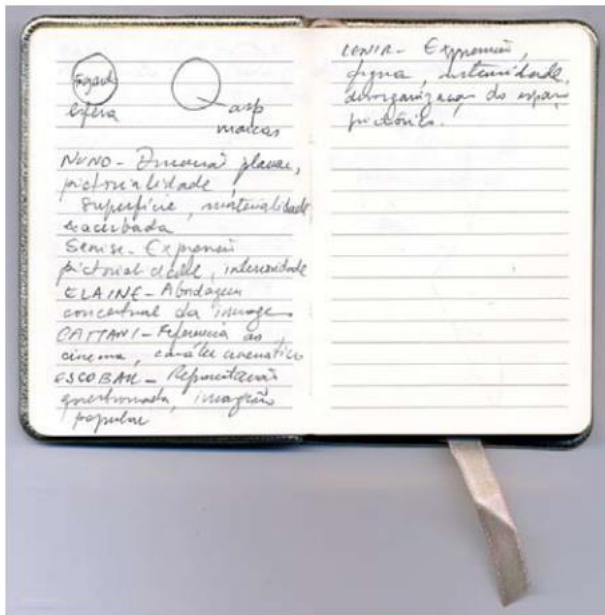 esfera
asp
marcas
NUNO - Dimensão planar,
pictorialidade
superfície, materialidade
exacerbada
Senise - Expressão
pictorialidade, interioridade
ELAINE - Abordagem
conceitual da imagem
CATTANI - Referência ao
cinema, caráter cinemático
ESCOBAR - Representação
questionada, imagem
popular
LENIR - Expressão,
figura, interioridade,
desorganização do espaço
pictórico.